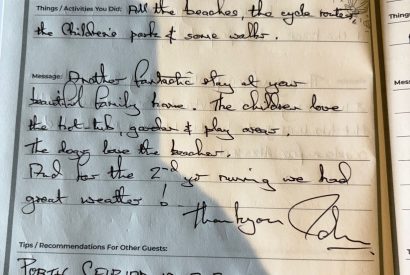 Things / Activities You Did: All the beaches, the cycle routes,
the Children's park & some walks.
Message: Another fantastic stay at your
beautiful family home. The children love
the hot tub, garden & play areas.
The dogs love the beaches.
And for the 2nd yr running we had
great weather!
Thankyou
Tips / Recommendations For Other Guests: